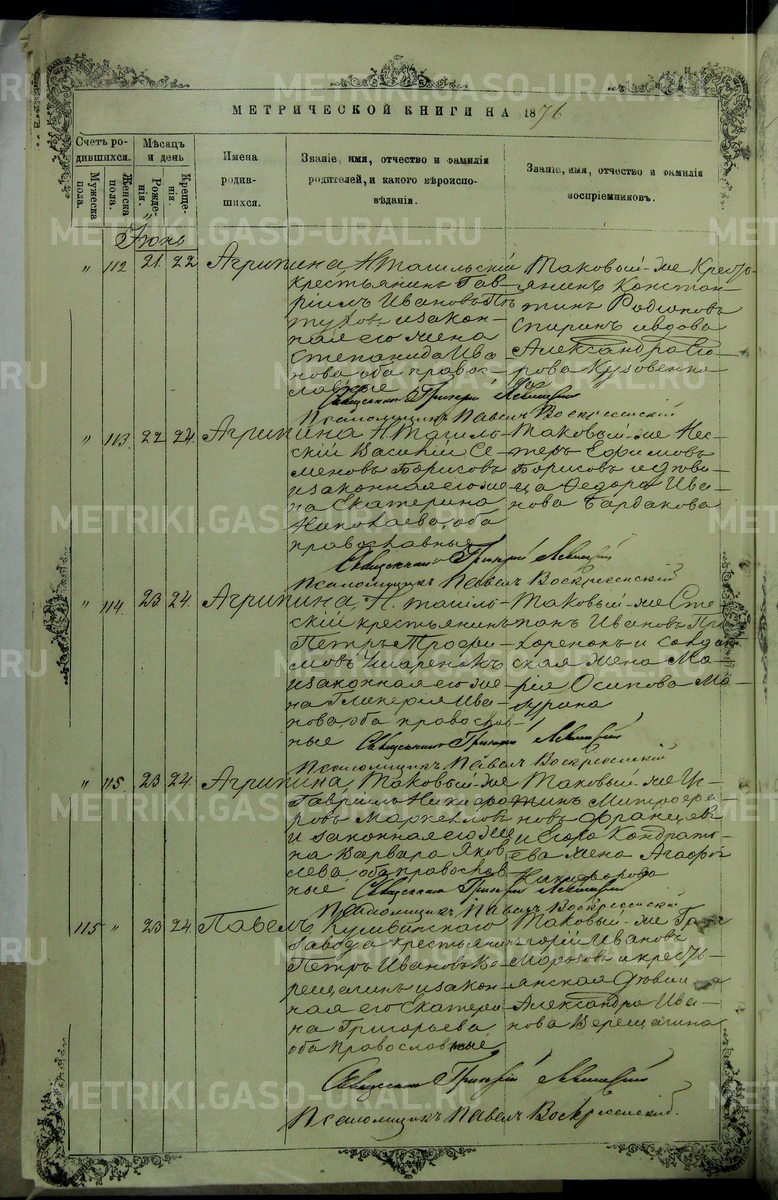 МЕТРИЧЕСКОЙ КНИГИ НА 1876
Счетъ ро-
дившихся.
Мужеска
пола.
Женска
пола.
Мѣсяцъ
и день
Рожде-
нія.
Креще-
нія.
Имена
родив-
шихся.
Званіе, имя, отчество и фамилія
родителей, и какого вѣроиспо-
вѣданія.
Званіе, имя, отчество и фамилія
воспріемниковъ.
Іюнь
" 112 21 22 Агрипина
Н. Тагильскій
крестьянинъ Гав-
ріилъ Ивановъ
и закон-
ная его жена
Степанида Ива
нова оба правос-
лавные
Таковый-же Кресть
янинъ Констан-
тинъ Родіоновъ
Спиринъ и вдова
Александра
Священникъ Григорій Левицкій
Псаломщикъ Павелъ Воскресенскій
" 113. 22 24. Агрипина
Н. Тагиль-
скій Василій Се-
меновъ Борисовъ
и законная его же
на Екатерина
Николаева, оба
православные
Таковый-же Нес-
теръ Ефимовъ
Борисовъ и дѣви-
ца Федора Ива-
нова Бардакова
Священникъ Григорій Левицкій
Псаломщикъ Павелъ Воскресенскій
" 114. 23 24. Агрипина
Н. тагиль-
скій крестьянинъ
Петръ Трофи-
мовъ
и законная его же-
на Гликерія Ива-
нова, оба правослов-
ные
Таковый-же Сте-
панъ Ивановъ
ская жена Ма-
рія Осипова Ма-
зурина
Священникъ Григорій Левицкій
Псаломщикъ Павелъ Воскресенскій
" 115 23 24. Агрипина
Таковый-же
Гавріилъ Никифо-
ровъ Маркеловъ
и законная его же
на Варвара Яков
лева, оба правослов-
ные
Таковый-же Ус-
тинъ Митрофа-
новъ Францевъ
и Егора Кондрать-
ева жена Агафья
Никифорова
Священникъ Григорій Левицкій
Псаломщикъ Павелъ Воскресенскій
115 " 23 24 Павелъ
завода крестьянинъ
Петръ Ивановъ Ве-
рещагинъ и закон-
ная его Екатери
на Григорьева,
оба православные
Таковый-же Гри-
горій Ивановъ
Морозовъ и кресть-
янская дѣвица
Александра Ива-
нова Верещагина
Священникъ Григорій Левицкій
Псаломщикъ Павелъ Воскресенскій.
METRIKI.GASO-URAL.RU